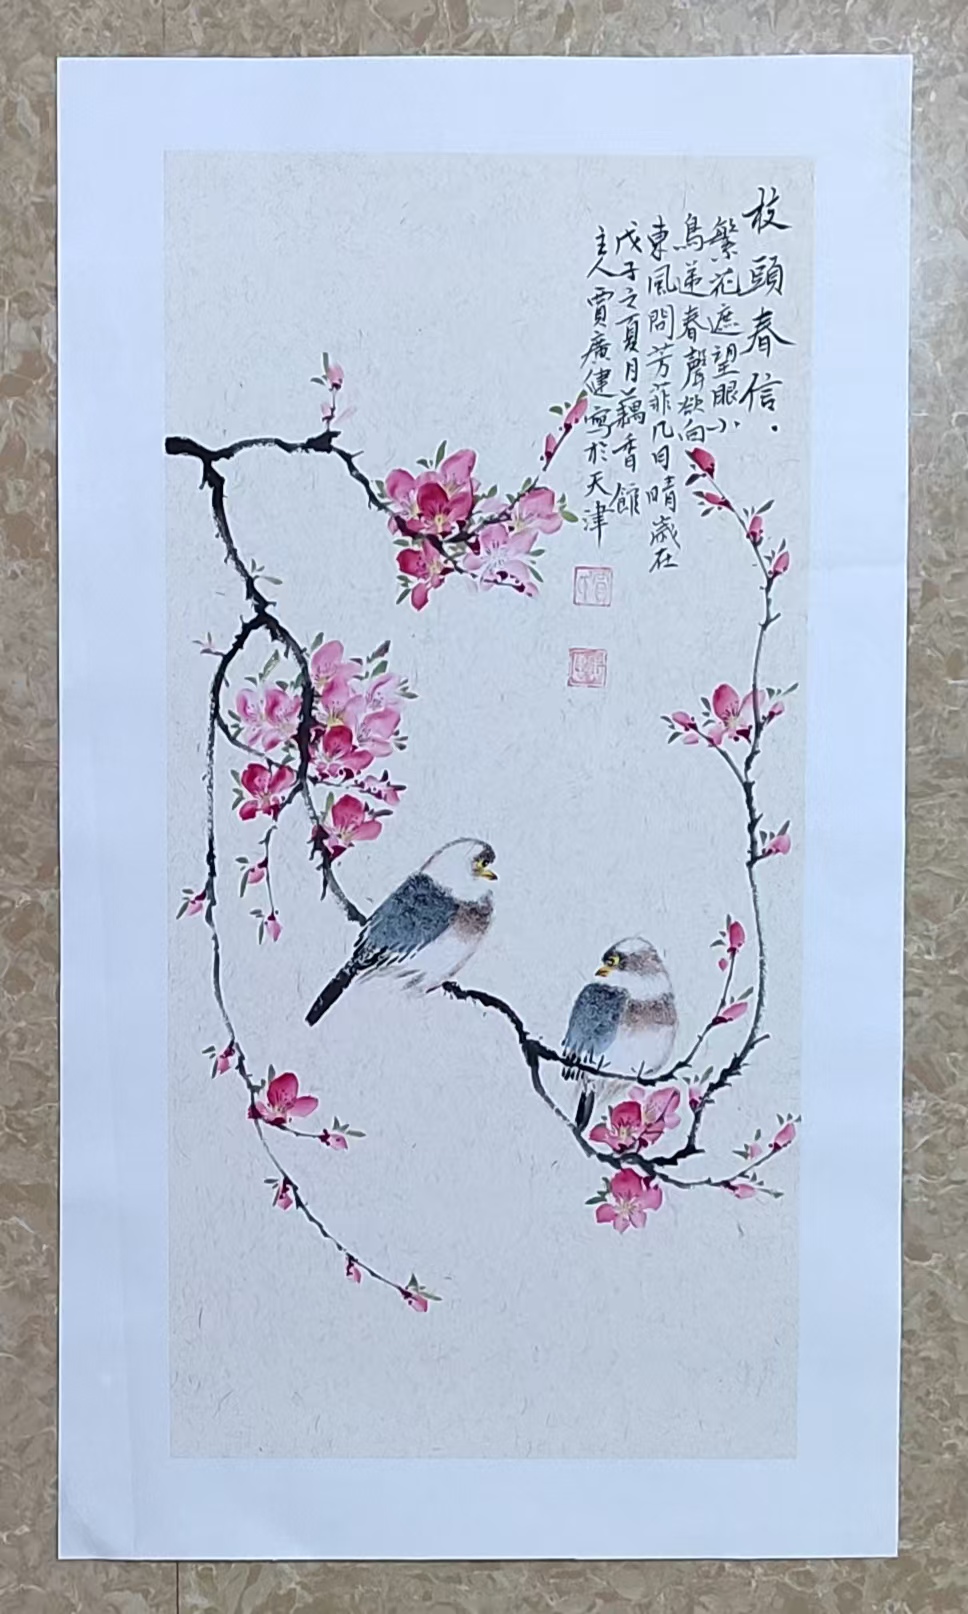 枝頭春信
繁花遮望眼小
鳥遞春聲欲向
東風問芳菲几日晴歲在
戊子之夏月藕香館
主人賈廣健寫於天津